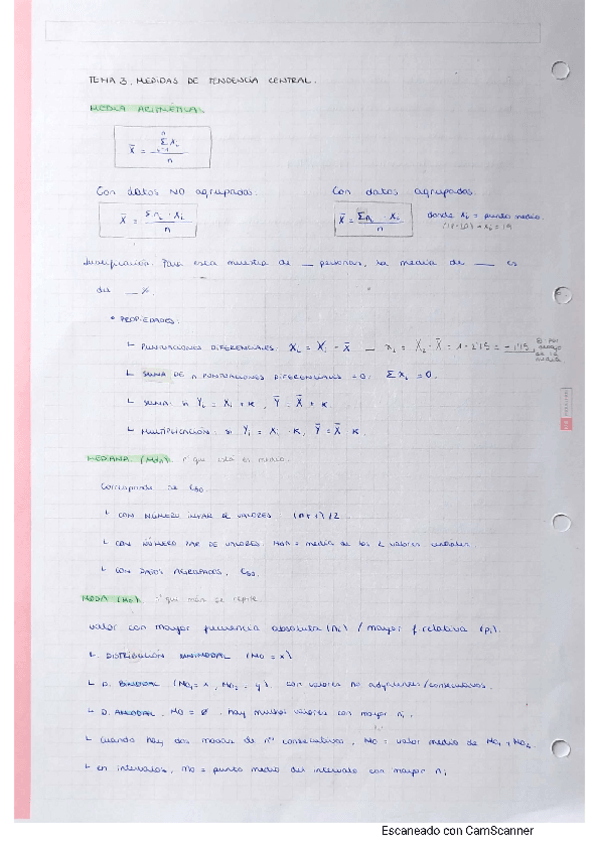 TEMA 3. MEDIDAS DE TENDENCIA CENTRAL.
MEDIA ARITMÉTICA
X̄ = Σ Xi / n
Con datos NO agrupados. Con datos agrupados.
X̄ = Σ ni · Xi / n X̄ = Σ ni · Xi / n donde Xi = punto medio.
Para esta muestra de __ personas, la media de __ es
de __ %.
• PROPIEDADES:
└ PUNTUACIONES DIFERENCIALES. xi = Xi - X̄
└ SUMA DE n PUNTUACIONES DIFERENCIALES = 0: Σ xi = 0.
└ SUMA: si Yi = Xi + K, Ȳ = X̄ + K.
└ MULTIPLICACIÓN: si Yi = Xi · K, Ȳ = X̄ · K
MEDIANA (Mdn) que está en medio.
Corresponde al C50.
└ CON NÚMERO IMPAR DE VALORES (n+1)/2
└ CON NÚMERO PAR DE VALORES. Mdn = media de los 2 valores centrales.
└ CON DATOS AGRUPADOS. C50.
MODA (Mo) que más se repite
valor con mayor frecuencia absoluta (ni) / mayor f relativa (pi).
└ DISTRIBUCIÓN UNIMODAL (Mo = x)
└ D. BIMODAL (Mo1 = x, Mo2 = y). con valores no adyacentes/consecutivos.
└ D. AMODAL. Mo = Ø. hay muchos valores con mayor ni.
└ Cuando hay dos modas de nº consecutivos, Mo = valor medio de Mo1 y Mo2.
└ en intervalos, Mo = punto medio del intervalo con mayor ni
Escaneado con CamScanner